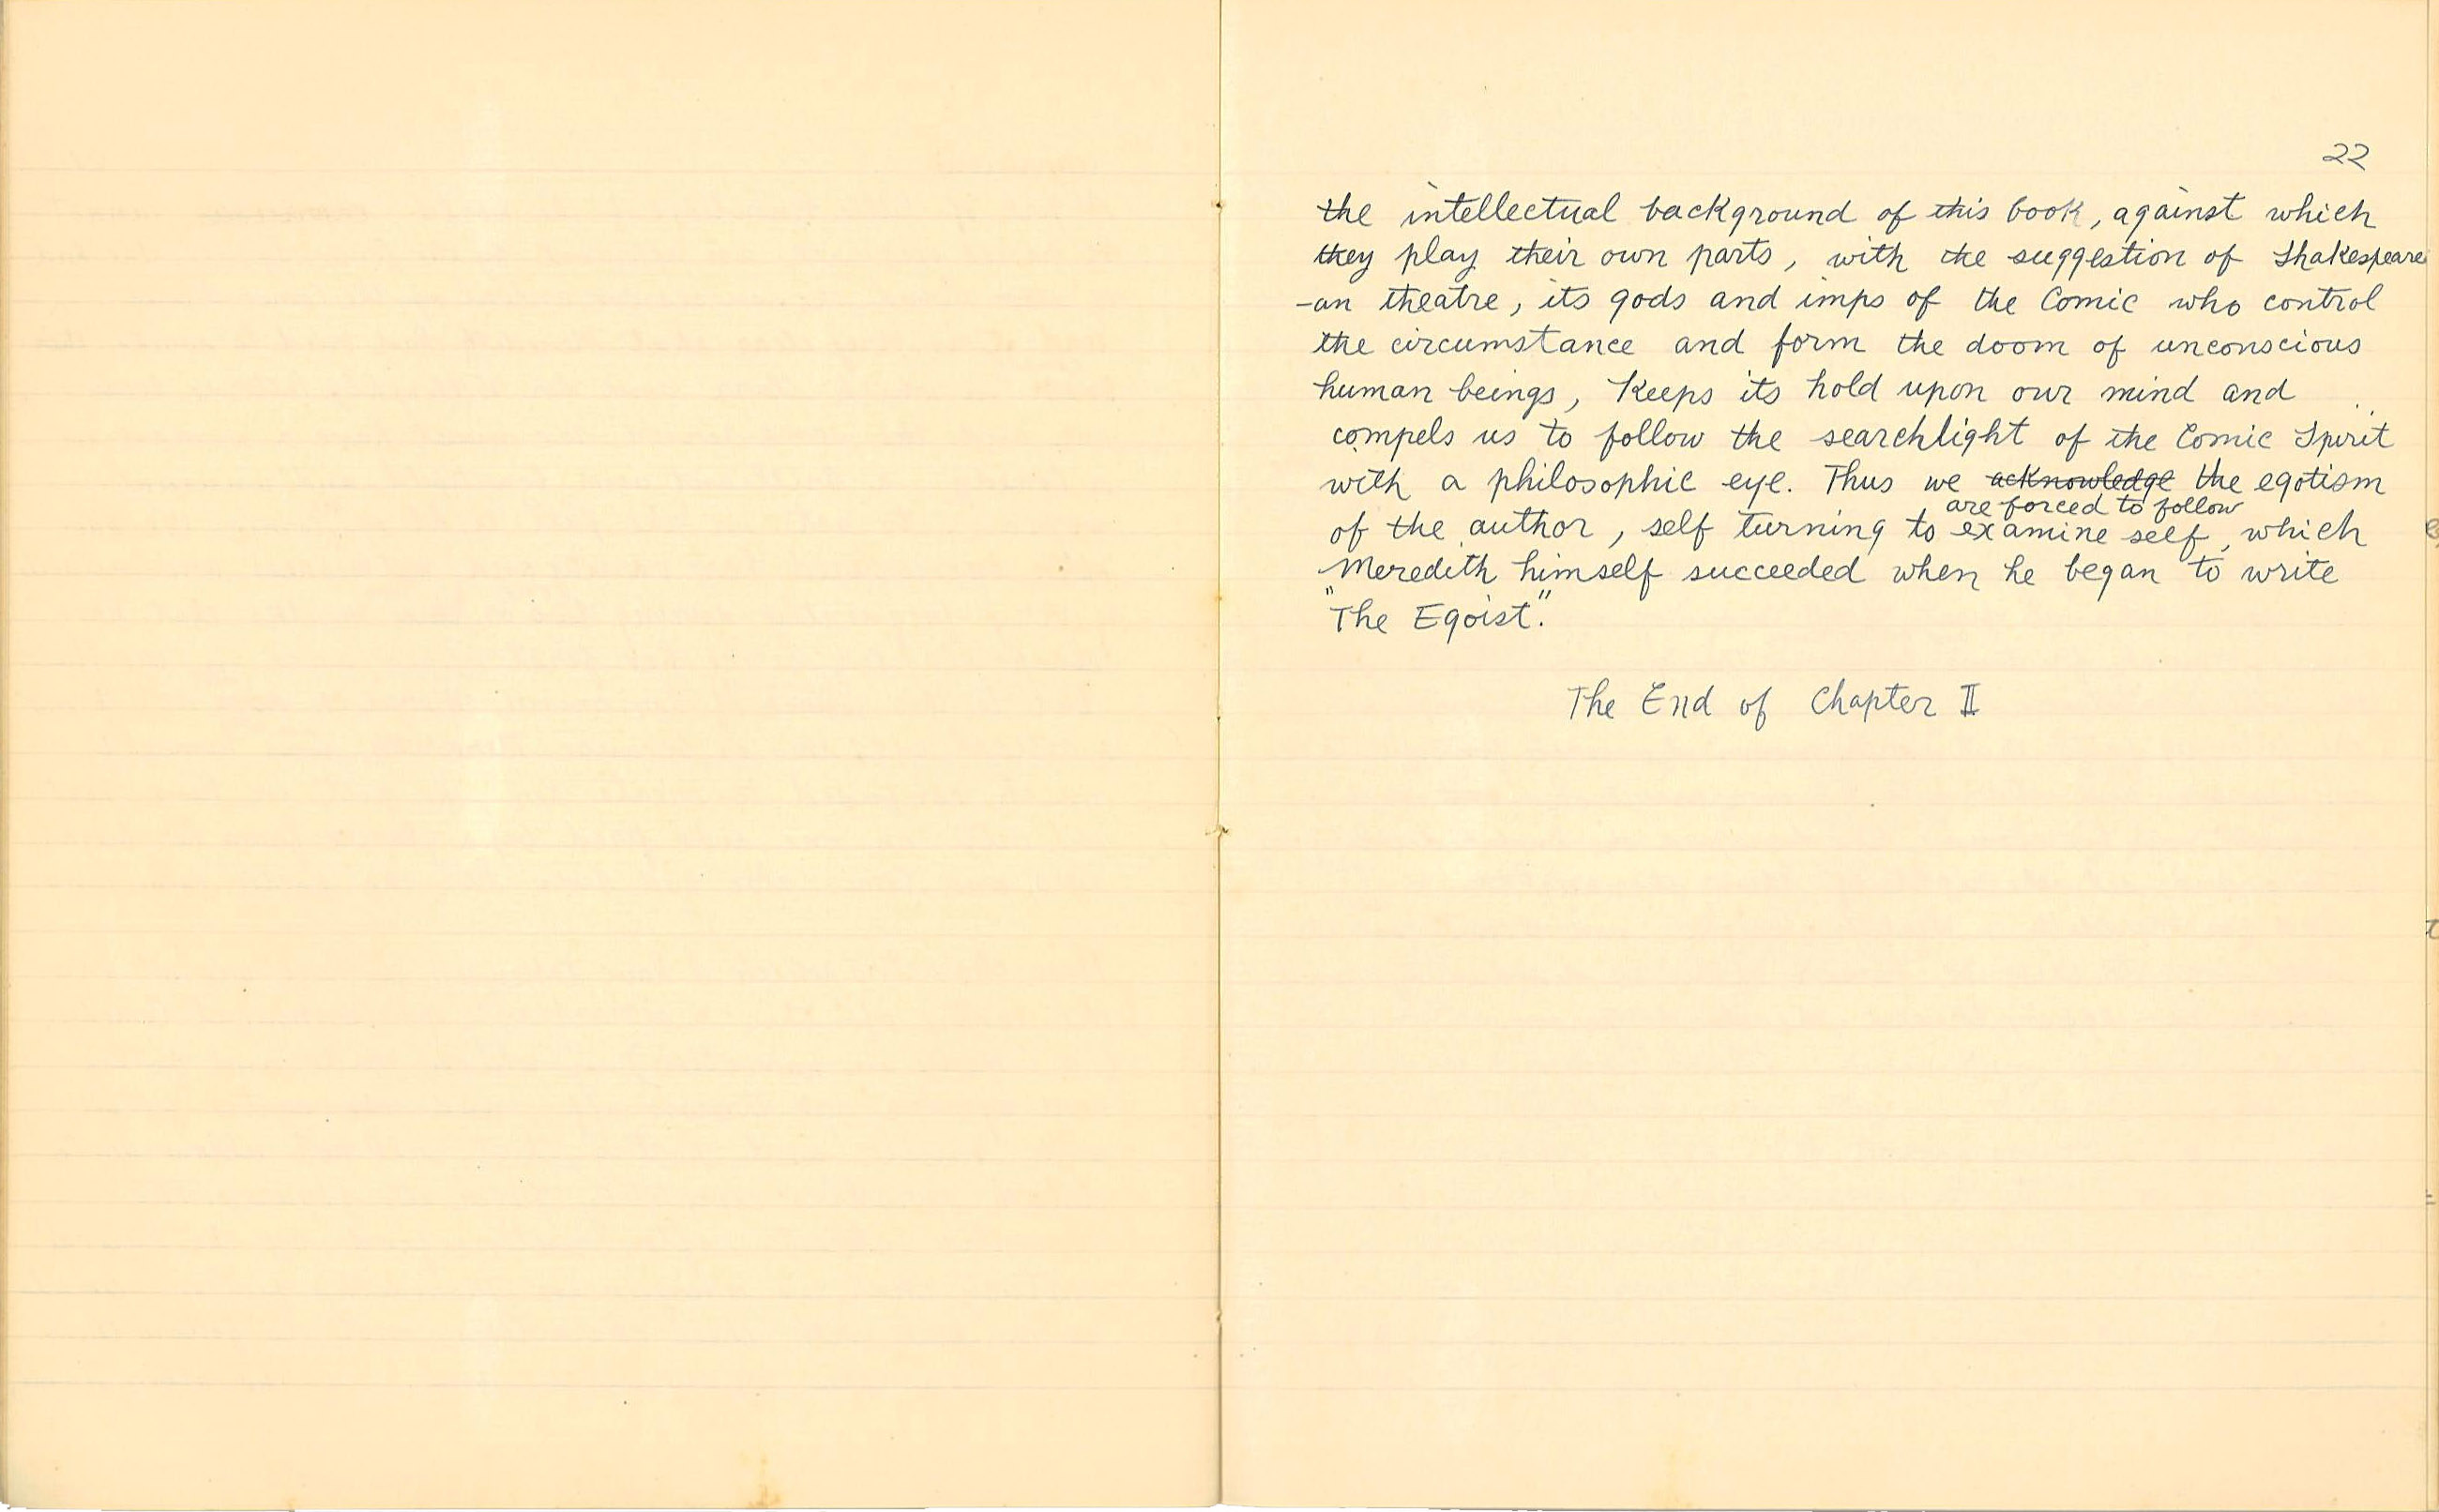 22
the intellectual background of this book, against which
they play their own parts, with the suggestion of Shakespeare
-an theatre, its gods and imps of the Comic who control
the circumstance and form the doom of unconscious
human beings, keeps its hold upon our mind and
compels us to follow the searchlight of the Comic Spirit
with a philosophic eye. Thus we acknowledge the egotism
are forced to follow
of the author, self turning to examine self, which
Meredith himself succeeded when he began to write
"The Egoist."
The End of Chapter II